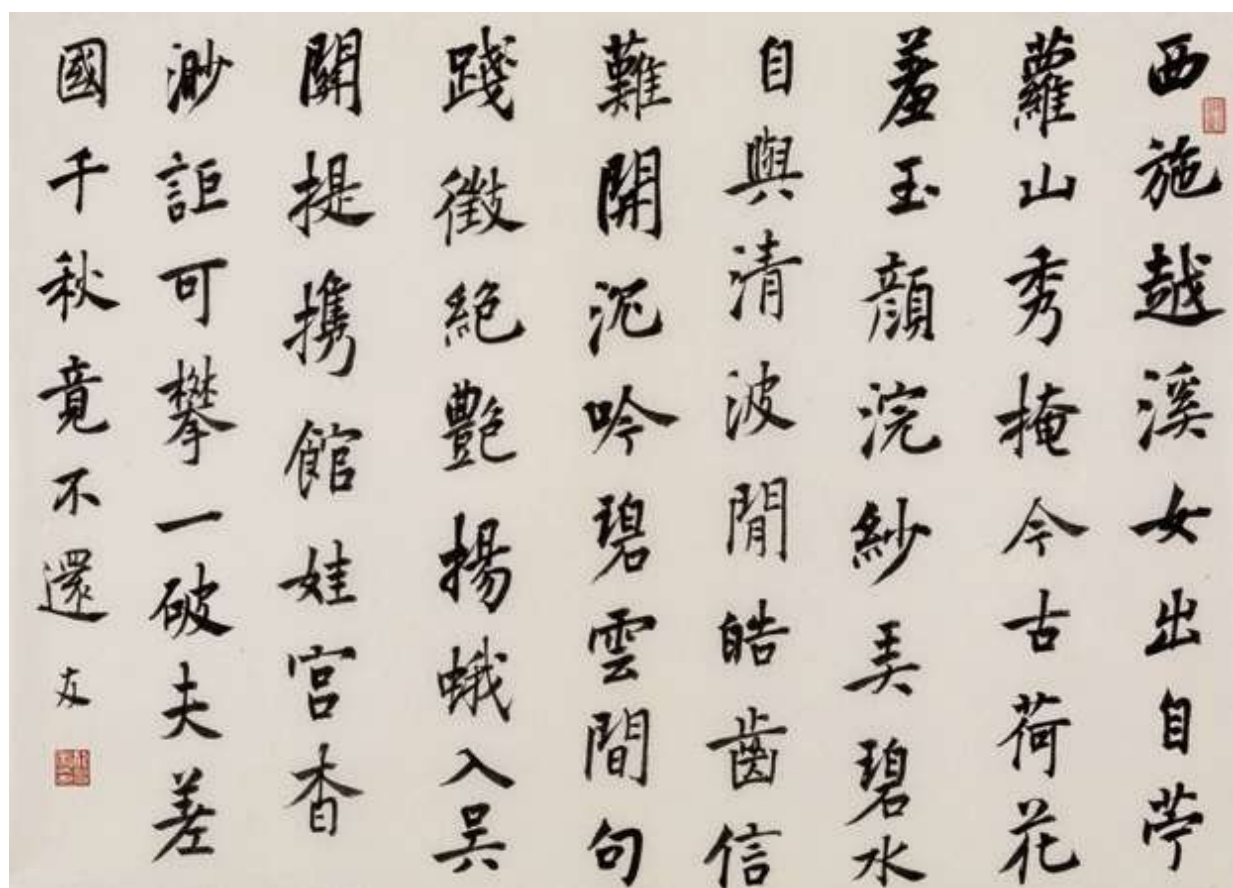 西施越溪女出自苧
蘿山秀掩今古荷花
羞玉顏浣紗弄碧水
自與清波閒皓齒信
難開沉吟碧雲間句
踐徵絕艷揚蛾入吳
關提携館娃宮杳
渺詎可攀一破夫差
國千秋竟不還 友